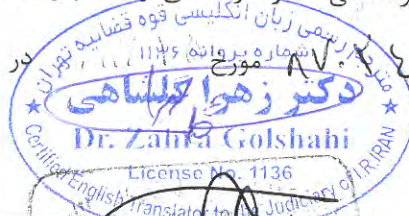 مترجم رسمی زبان انگلیسی قوه قضاییه تهران
شماره پروانه ۱۱۳۶
مورخ
در
دکتر زهرا گلشاهی
Dr. Zahra Golshahi
License No. 1136
Certified English Translator to the Judiciary of I.R.IRAN